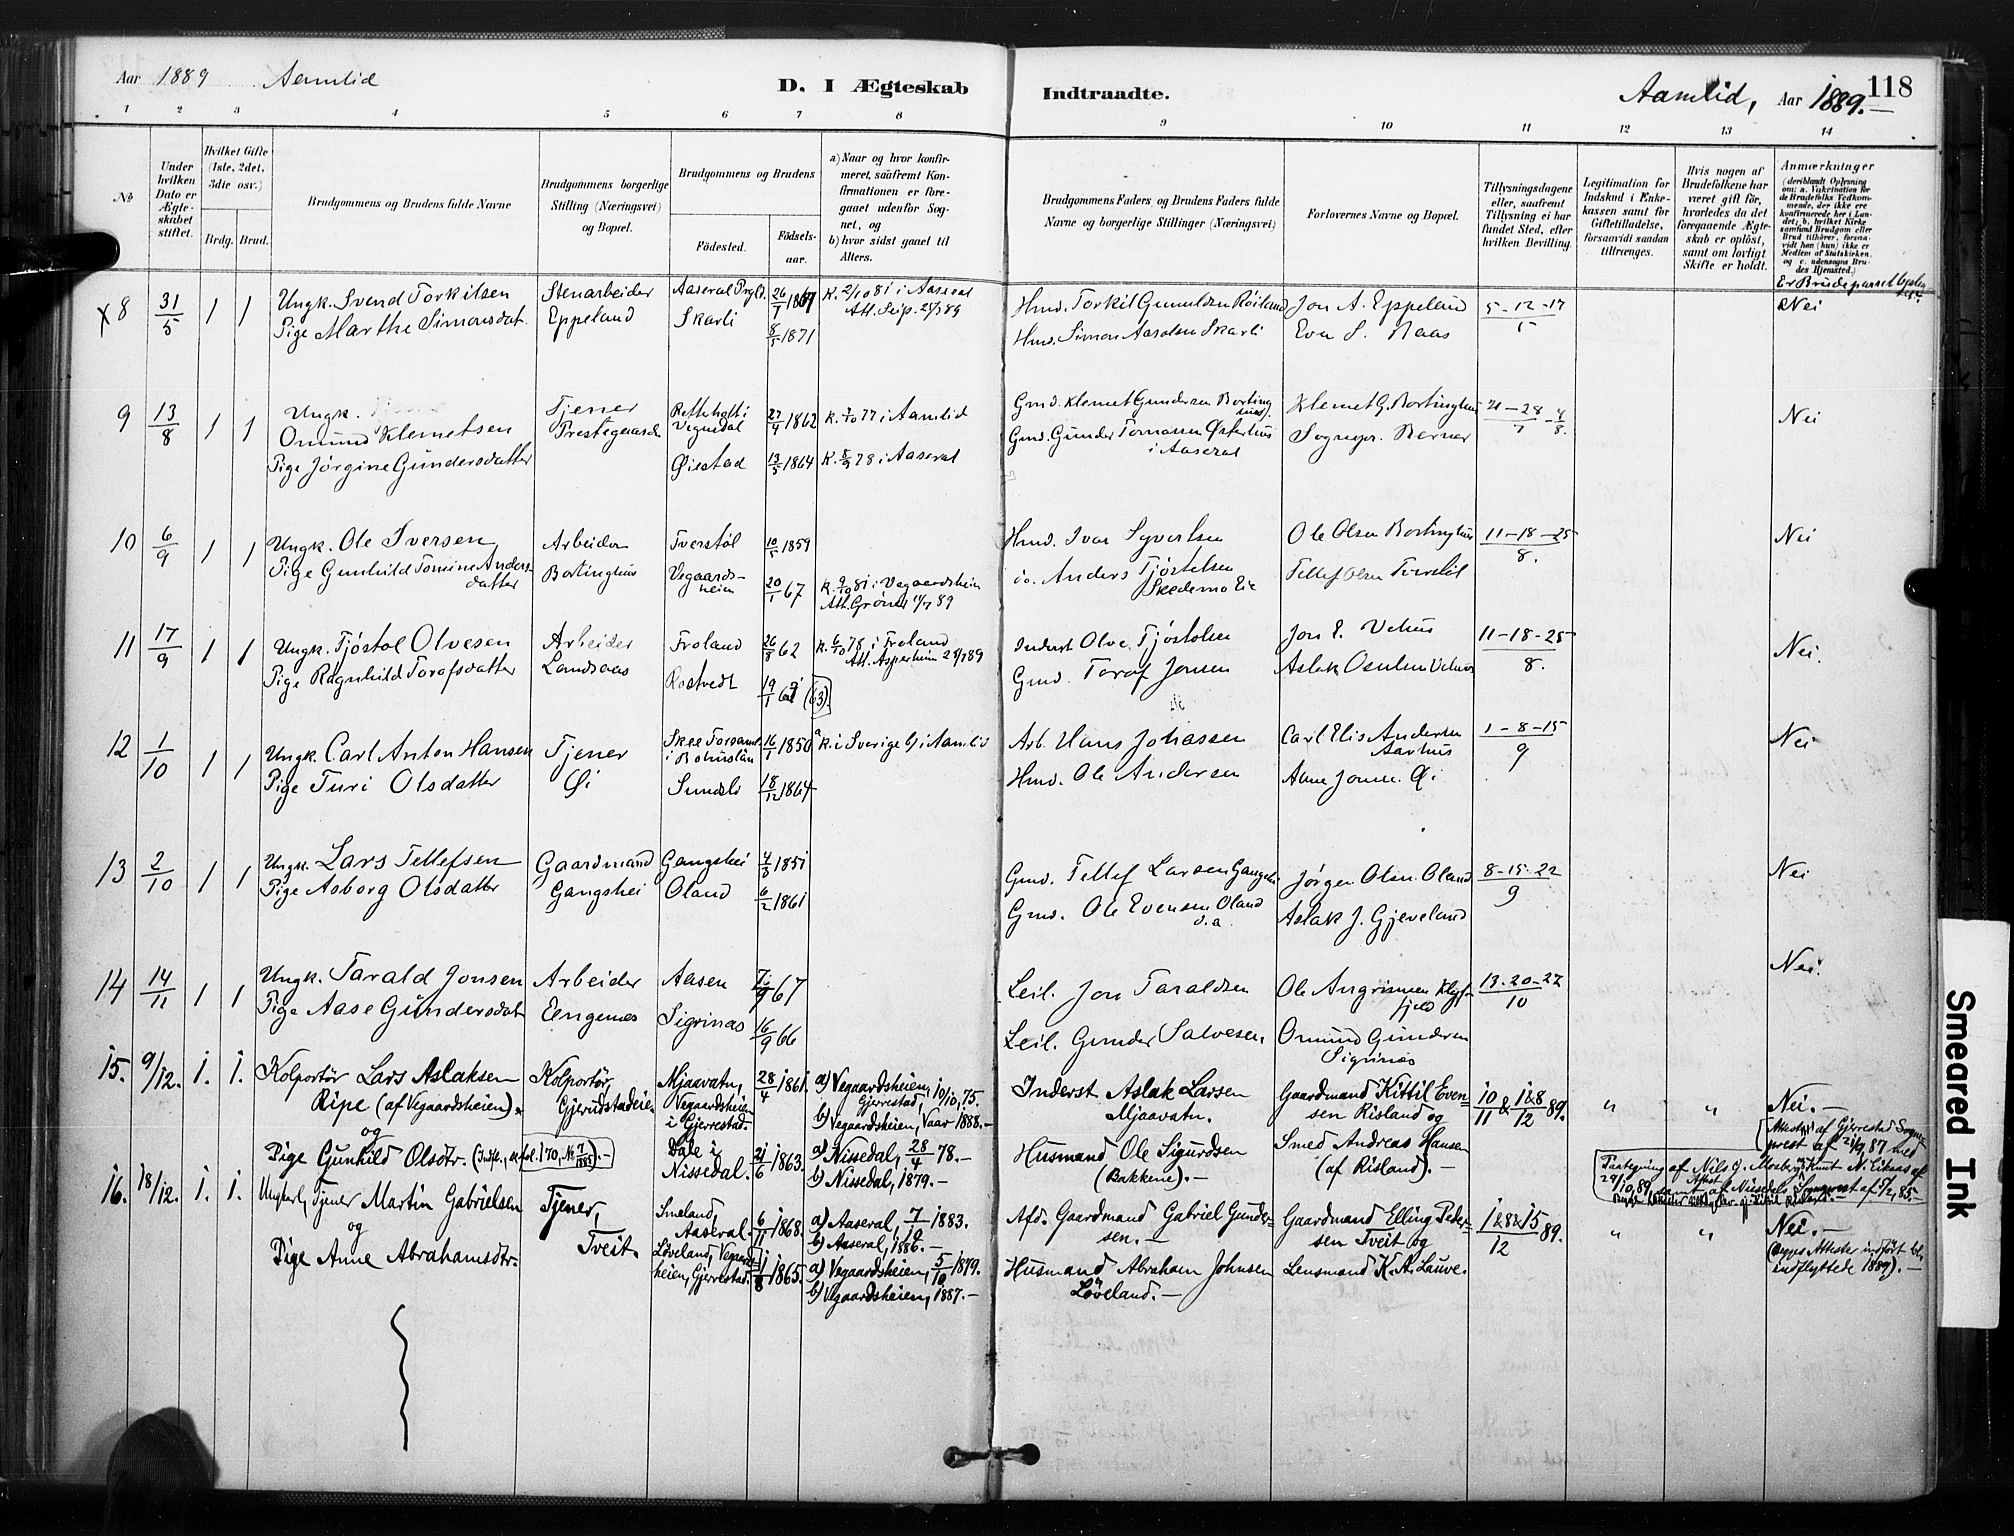 Aar 1889 Aamlid
D. I Ægteskab Indtraadte.
Aamlid, Aar 1889.
118
1 2 3 4 5 6 7 8 9 10 11 12 13 14
No
Under hvilken Dato er Ægteskabet stiftet.
Hvilket Gifte (1ste, 2det, 3die osv.)
Brdg. Brud.
Brudgommens og Brudens fulde Navne
Brudgommens borgerlige Stilling (Næringsvei) og Bopæl.
Brudgommens og Brudens
Födested.
Födselsaar.
a) Naar og hvor konfirmeret, saafremt Konfirmationen er foregaaet udenfor Sognet, og
b) hvor sidst gaaet til Alters.
Brudgommens Faders og Brudens Faders fulde Navne og borgerlige Stillinger (Næringsvei)
Forlovernes Navne og Bopæl.
Tillysningsdagene eller, saafremt Tillysning ei har fundet Sted, efter hvilken Bevilling.
Legitimation for Indskud i Enkekassen samt for Giftetilladelse, forsaavidt saadan tiltrænges.
Hvis nogen af Brudefolkene har været gift før, hvorledes da det foregaaende Ægteskab er oplöst, samt om lovligt Skifte er holdt.
Anmærkninger
(deriblandt Oplysning om: a. Vakcination for de Brudefolks Vedkommende, der ikke ere konfirmerede her i Landet; b. hvilket Kirkesamfund Brudgom eller Brud tilhörer, forsaavidt han (hun) ikke er Medlem af Statskirken, og c. udensogns Brudes Hjemsted.)
Er Brudeparret
x 8 31/5 1 1 Ungk. Svend Torkilsen Stenarbeider Aaseral Prgld. 26/7 1867 K. 2/10 81 i Aaseral
Pige Marthe Simonsdat. Eppeland Skarli 8/5 1871
Hmd. Torkil Gunuldsen Röiland Jon A. Eppeland 5-12-17 Nei
Hmd. Simon Aasolsen Skarli Even S. Naas
9 13/8 1 1 Ungk. Omund Klemetsen Tjener Prestegaarden 27/4 1862 K. 7/10 77 i Aamlid
Pige Jørgine Gundersdatter Øiestad 13/5 1864 K. 8/9 78 i Aaseral
Gmd. Klemet Gundersen Klemet G. Bortinghus 21-28 Nei
Gmd. Gunder i Aaseral Sognepr. Berner
10 6/9 1 1 Ungk. Ole Iversen Arbeider Tverstöl 10/5 1859
Pige Gunhild Tomine Andersdatter Bortinghus Vegaardsheien 20/1 67 K. 9/10 81 i Vegaardsheien
Hmd. Ivar Syvertsen Ole Olsen Bortinghus 11-18-25/8. Nei
do. Anders Tjöstelsen Tellef Olsen Tverstöl
11 17/9 1 1 Ungk. Tjøstol Olvesen Arbeider Froland 26/8 62 K. 6/10 78 i Froland
Pige Ragnhild Torafsdatter Landsaas Rostvedt 19/1 (63).
Inderst Olve Tjöstolsen Jon E. Vehus 11-18-25/8. Nei.
Gmd. Toraf Jonsen Aslak Osulsen Vehus
12 1/10 1 1 Ungk. Carl Anton Hansen Tjener i Bohuslän 16/1 1850 a K. i Sverige b) i Aamlid
Pige Turi Olsdatter Øi Sundsli 18/12 1864
Arb. Hans Johassen Carl Elis Andersen 1-8-15/9 Nei
Hmd. Ole Andersen Anne Jonsen Øi
13 2/10 1 1 Ungk. Lars Tellefsen Gaardmand Gangshei 4/3 1851
Pige Asborg Olsdatter Gangshei Oland 6/2 1861
Gmd. Tellef Larsen Gangshei Jørgen Olsen Oland 8-15-22/9 Nei
Gmd. Ole Evensen Oland Aslak J. Gjeveland
14 14/11 1 1 Ungk. Tarald Jonsen Arbeider Aasen 67
Pige Aase Gundersdat Eengenes Sigrinas 16/9 66
Leil. Jon Taraldsen Ole 13-20-27/10 Nei.
Leil. Gunder Salvesen, Omund Gundersen Sigrinas
15. 9/12. 1. 1. Kolportør Lars Aslaksen Ripe (af Vegaardsheien). Kolportør, Gjerustadeie. Mjaavatn, Vegaardsheien i Gjerrestad. 28/4 1861. a) Vegaardsheien, Gjerrestad, 10/10, 75.
b) Vegaardsheien, Vaar 1888.-
og
Pige Gunhild Olsdtr. Dale i Nissedal. 21/6 1863. a) Nissedal, 28/4 78.-
b) Nissedal, 1879.-
Inderst Aslak Larsen Mjaavatn. Gaardmand Kittil Evensen Risland og 10/11 & 1&8/12 89. " " Nei.-
Husmand Ole Sigurdsen (Bakkene).- Smed Andreas Hansen (af Risland).-
(Attester af Gjerrestad Sogneprest af 21/9 87 med
Paategning af Nils G. Moeberg
16. 18/12. 1. 1. Ungkarl, Tjener Martin Gabrielsen Tjener, Tveit. Smeland, Aaseral. 6/11 1868. a) Aaseral, 7/10 1883.
b) Aaseral, 1886.-
og
Pige Anne Abrahamsdtr. Løveland, Vegaardsheien, Gjerrestad. 1/8 1865. a) Vegaardsheien, 5/10 1879.
b) Vegaardsheien, 1887.-
Afd. Gaardmand Gabriel Gundersen.- Gaardmand Elling Pedersen Tveit og 1&8&15/12 89. " " Nei.-
Husmand Abraham Johnsen Løveland.- Lensmand K. A. Lauve.
(Begges Attester indført bl. indflyttede 1889).-
Smeared Ink